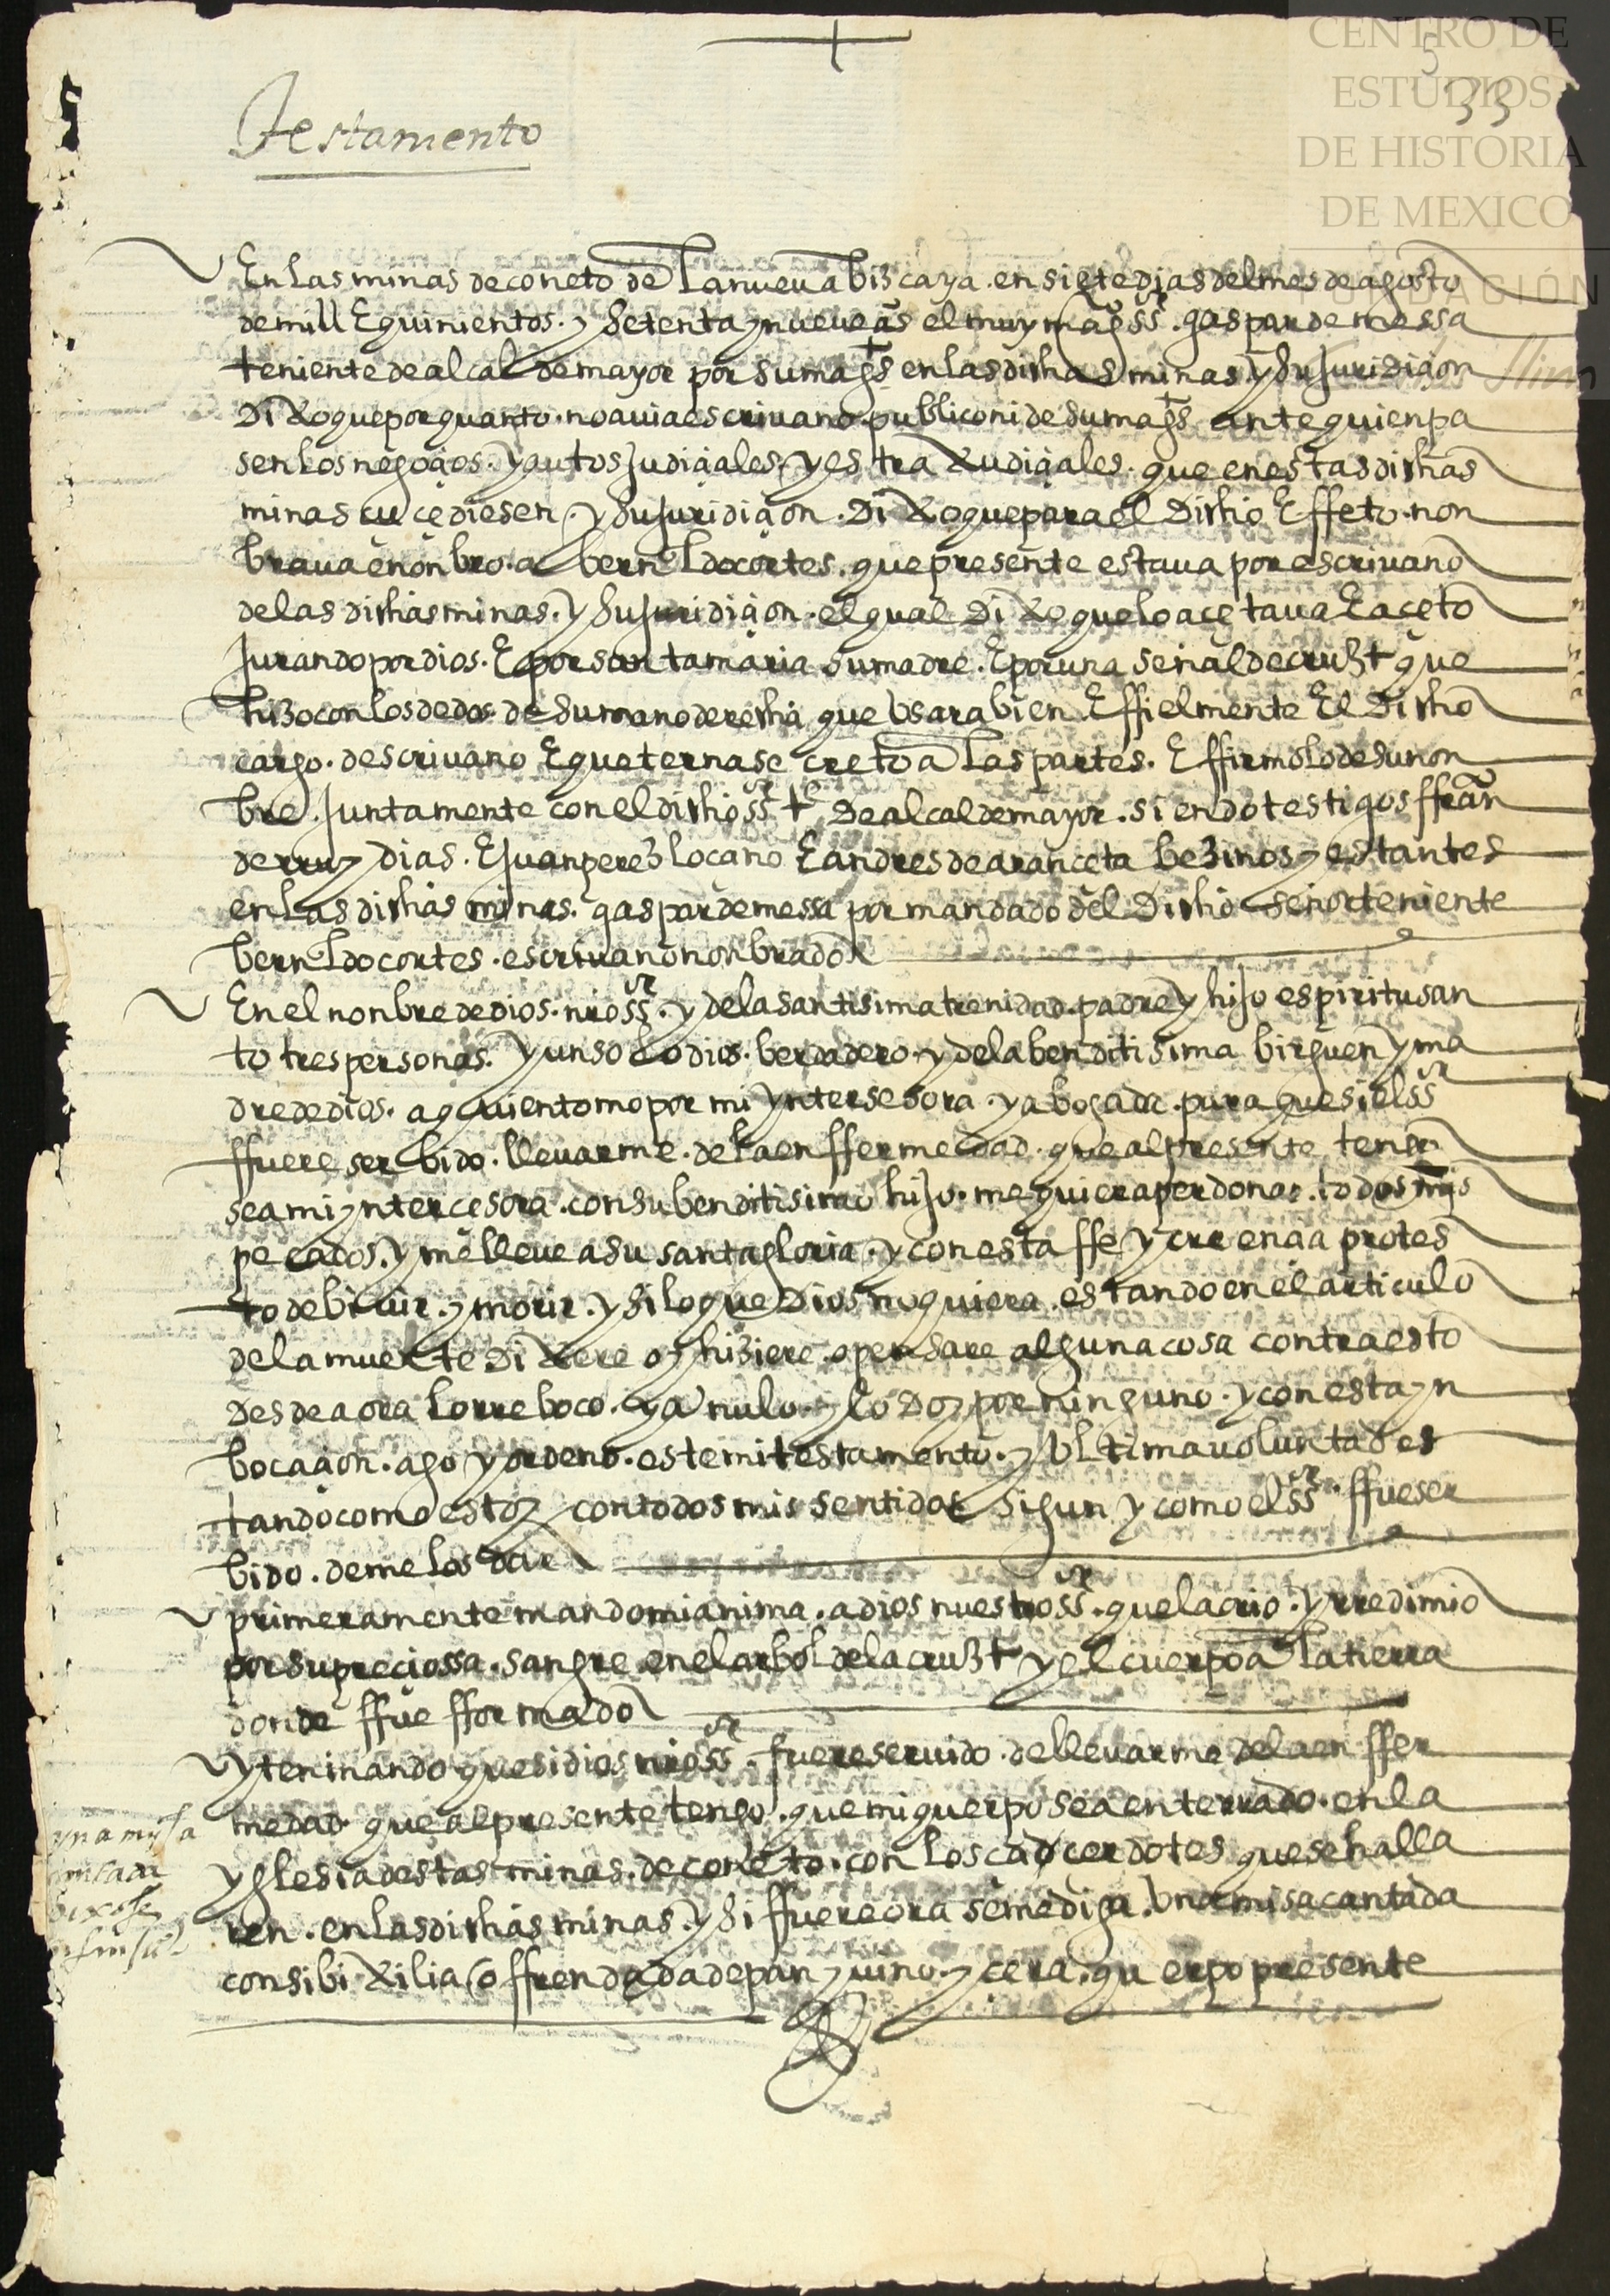 CENTRO DE
ESTUDIOS
DE HISTORIA
DE MEXICO
FUNDACIÓN
Slim
5
33
Testamento
En las minas de coneto de la nueva bizcaya. en siete dias del mes de agosto
de mill E quinientos. y setenta y nueve as el muy mag ssr. gaspar de messa
teniente de alcalde mayor por su magt en las dichas minas y su juridiçion
Dixo que por quanto. no avia escrivano. publico ni de su magt ante quien pa
sen los negoçios. y autos judiçiales. y estraxudiçiales. que en estas dichas
minas çuçediesen. y su juridiçion. Dixo que para el Dicho Effeto. non
brava e nonbro. a bernldo cortes. que presente estava por escrivano
de las dichas minas. y su juridiçion. el qual Dixo que lo açetava E aceto
jurando por dios. E por santa maria su madre. E por una señal de cruz + que
hizo con los dedos de su mano derecha que usara bien E ffielmente El Dicho
cargo. descrivano E que terna secreto a las partes. E ffirmolo de su non
bre. juntamente con el dicho ssr te De alcalde mayor. siendo testigos ffran
de rruy dias. E juan perez locano E andres de aranceta bezinos y estantes
en las dichas minas. gaspar de messa por mandado del Dicho señor teniente
bernldo cortes. escrivano nonbrado
En el nonbre de dios. nro ssr. y de la santisima trenidad. padre y hijo espiritu san
to tres personas. y un solo dios. berdadero. y de la benditisima birguen y ma
dre de dios. a quien tomo por mi yntersesora. y abogada. para que si el ssr
ffuere serbido. llevarme. de la enffermedad. que al presente tengo
sea mi yntercesora. con su benditisimo hijo. me quiera perdonar. todos mys
pecados. y me lleve a su santa gloria. y con esta ffe y creençia protes
to de bivir. y morir. y si lo que Dios no quiera. estando en el articulo
de la muerte Dixere o hiziere. o pensare alguna cosa contra esto
Desde aora lo rreboco. y a nulo. y lo Doy por ninguno. y con esta yn
bocaçion. ago y ordeno. este mi testamento. y ultima voluntad es
tando como estoy con todos mis sentidos sigun y como el ssr. ffue ser
bido. de me los dar
primeramente mando mi anima. a dios nuestro ssr. que la crio. y rredimio
por su preciossa. sangre. en el arbol de la cruz + y el cuerpo a la tierra
donde ffue fformado
yten mando que si dios nro ssr. fuere servido. de llevarme de la enffer
medad. que al presente tengo. que mi querpo sea enterrado. en la
yglesia destas minas. de coneto. con los caçerdotes que se halla
ren. en las dichas minas. y si ffuere ora se me diga. una misa cantada
con si bixilia offrendada de pan y vino. y cera. querpo presente
yna mysa